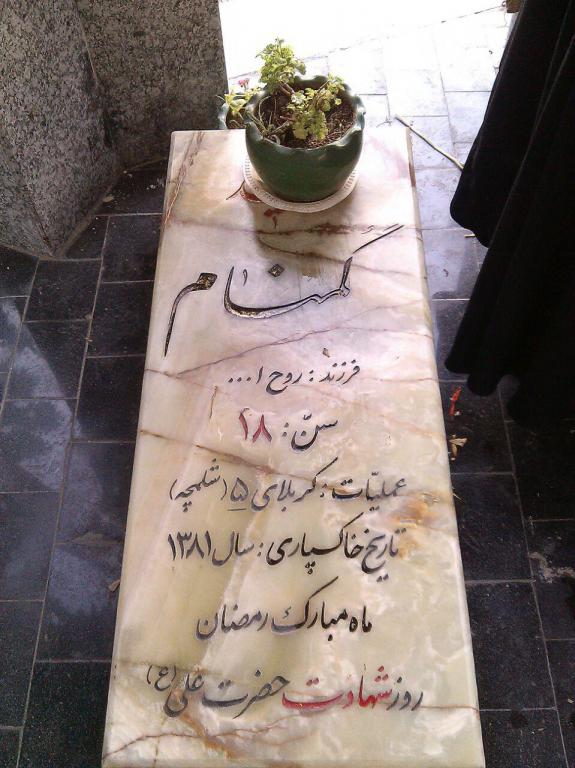 گمنام
فرزند: روح ا...
سنّ: ۱۸
عملیّات: کربلای ۵ (شلمچه)
تاریخ خاکسپاری: سال ۱۳۸۱
ماه مبارک رمضان
روز شهادت حضرت علی (ع)